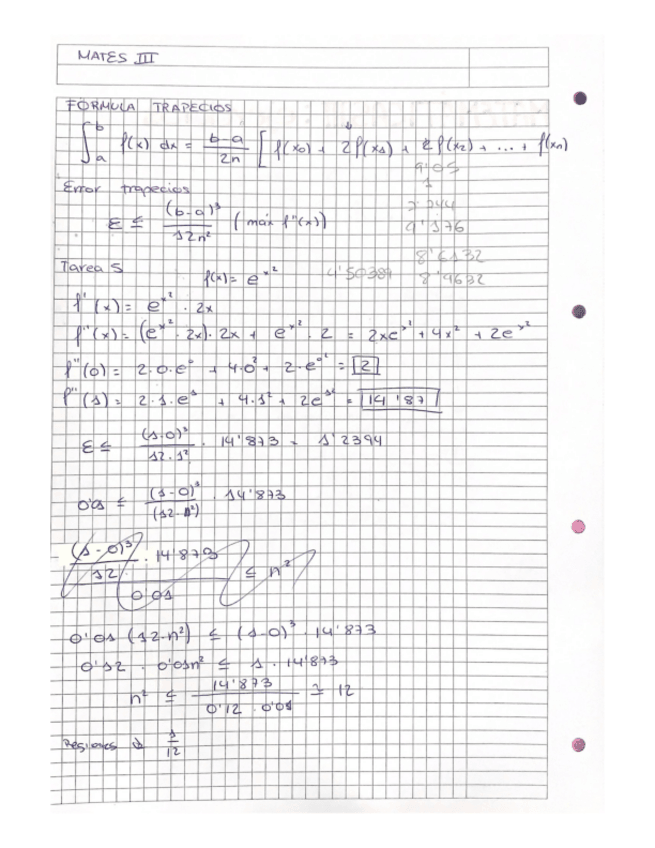 MATES III
FÓRMULA TRAPECIOS
∫ₐᵇ f(x) dx = b-a / 2n [ f(x₀) + 2f(x₁) + 2f(x₂) + ... + f(xₙ)
9'05
1
2'244
9'176
8'6132
4'50389 8'9632
Error trapecios
ε ≤ (b-a)³ / 12n² (máx f''(x))
Tarea 5 f(x) = e^x²
f'(x) = e^x² · 2x
f''(x) = (e^x² · 2x) · 2x + e^x² · 2 = 2xe^x² + 4x² + 2e^x²
f''(0) = 2·0·e⁰ + 4·0² + 2·e^0² = 2
f''(1) = 2·1·e¹ + 4·1² + 2e^1² = 14'87
ε ≤ (1-0)³ / 12·1² · 14'873 = 1'2394
0'01 ≤ (1-0)³ / (12·n²) · 14'873
(1-0)³ / 12 · 14'873 / 0'01 ≤ n²
0'01 (12·n²) ≤ (1-0)³ · 14'873
0'12 · 0'01n² ≤ 1 · 14'873
n² ≤ 14'873 / 0'12 · 0'01 ≃ 12
Regiones 1/12